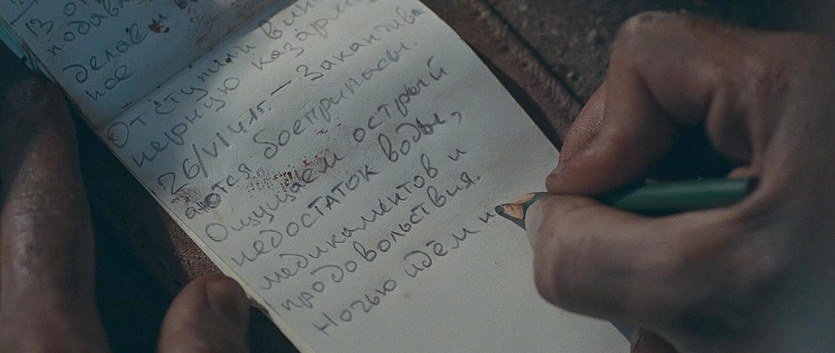 13 о
подав
делаем
ное
Отступили в ин
нерную казарм
26/VI 41г. — Заканчива
ются боеприпасы.
Ощущаем острый
недостаток воды,
медикаментов и
продовольствия.
Ночью идём н